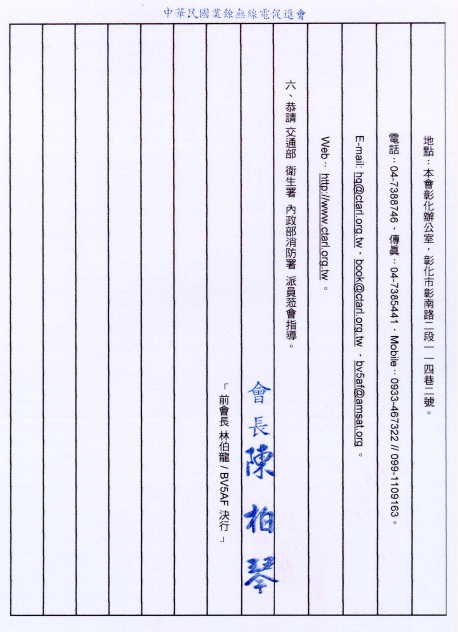 中華民國業餘無線電促進會
地點：本會彰化辦公室，彰化市彰南路二段一一四巷二號。
電話：04-7388746，傳真：04-7385441，Mobile：0933-467322 // 099-1109163。
E-mail: hq@ctarl.org.tw、book@ctarl.org.tw、bv5af@amsat.org。
Web： http://www.ctarl.org.tw。
六、恭請 交通部 衛生署 內政部消防署 派員蒞會指導。
會長 陳柏琴
「前會長 林伯龍 / BV5AF 決行」